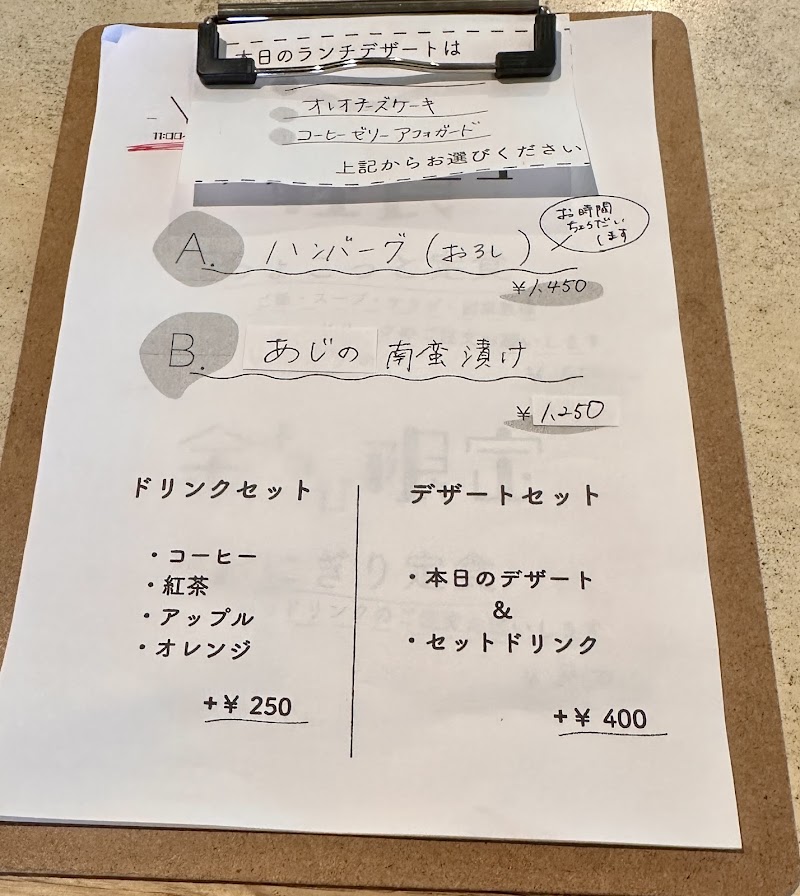 本日のランチデザートは
オレオチーズケーキ
コーヒーゼリーアフォガード
上記からお選びください
11:00-
A. ハンバーグ(おろし)
お時間
ちょうだい
します
¥1,450
B. あじの南蛮漬け
¥1,250
ドリンクセット
・コーヒー
・紅茶
・アップル
・オレンジ
+¥ 250
デザートセット
・本日のデザート
&
・セットドリンク
+¥ 400